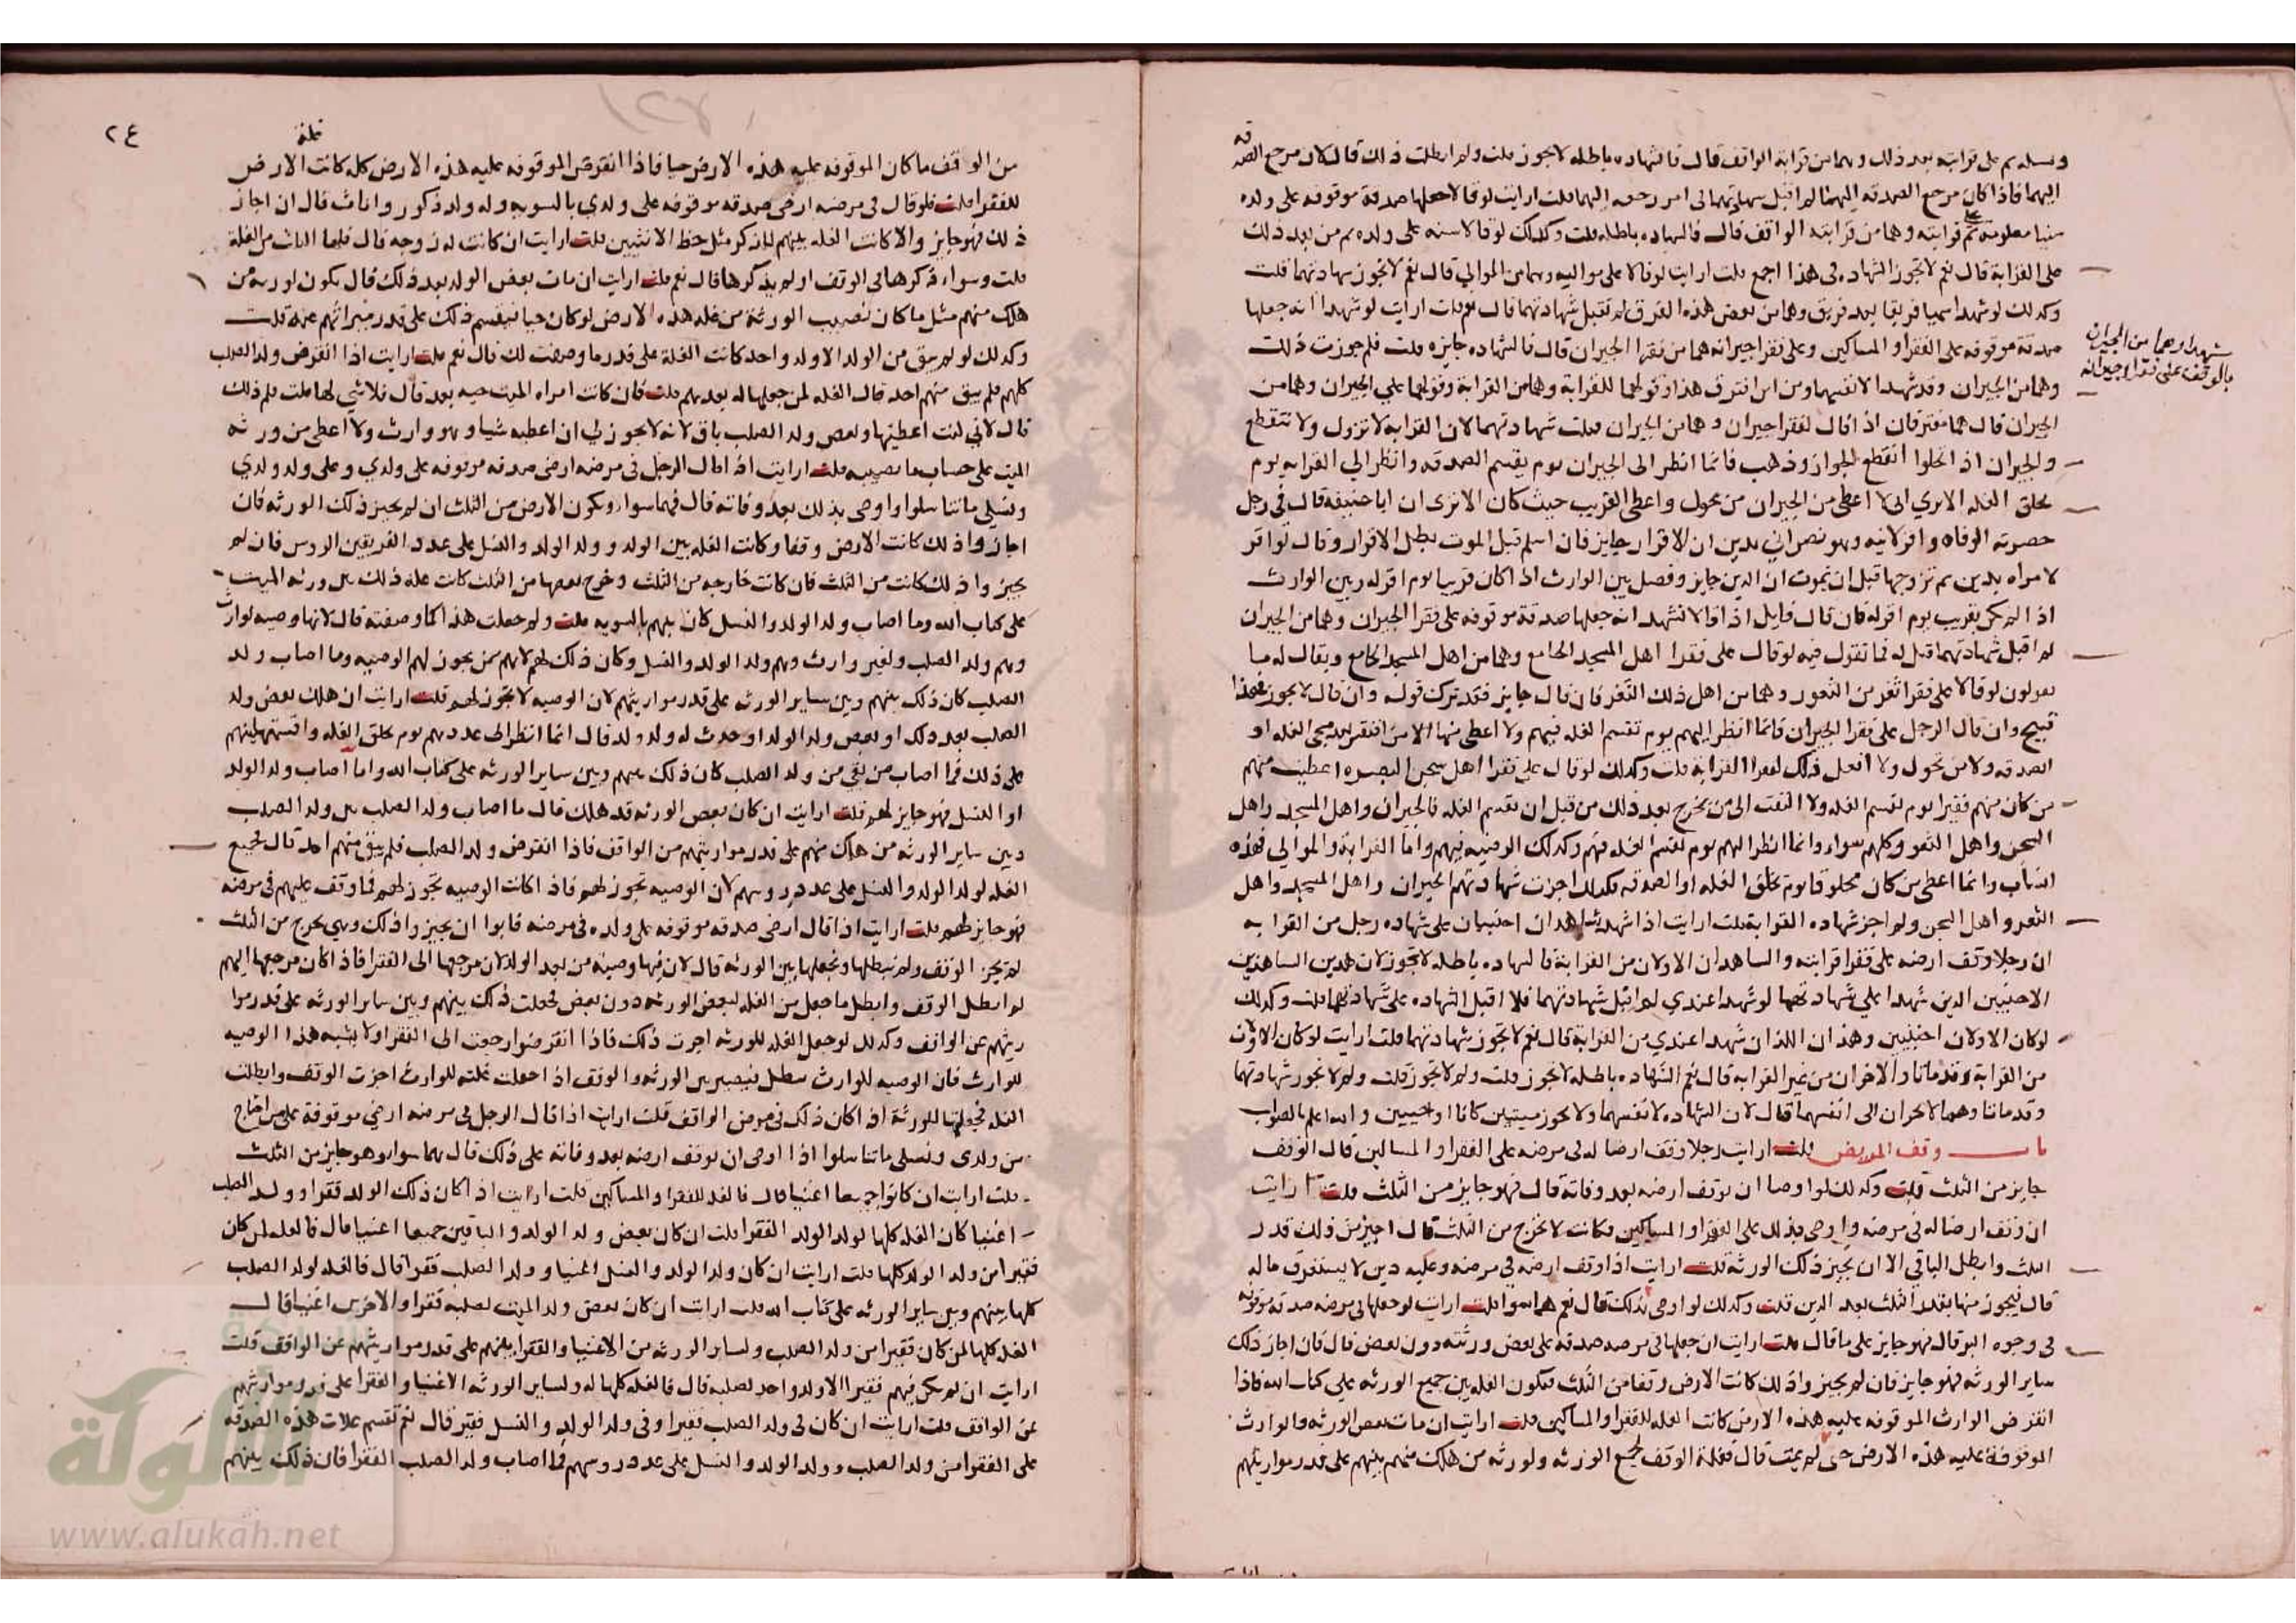 ونسله ثم على قرابته بعد ذلك وهما من قرابة الواقف قال فالشهاده باطله لا تجوز قلت ولم ابطلت ذلك قال لان مرجع الصدقه
اليهما فاذا كان مرجع الصدقه اليهما لم اقبل شهادتهما في امر رجعه اليهما قلت ارايت لو قالا جعلها صدقة موقوفه على ولده
سنينا معلومه ثم على قرابته وهما من قرابته الواقف قال فالشهاده باطله قلت وكذلك لو قالا سنه على ولده ثم من بعد ذلك
على القرابة قال نعم لا تجوز الشهاده في هذا اجمع قلت ارايت لو قالا على مواليه وهما من الموالي قال نعم لا تجوز شهادتهما قلت
وكذلك لو شهدا سميا فريقا بعد فريق وهما من بعض هذه الفرق لم تقبل شهادتهما قال نعم قلت ارايت لو شهدا انه جعلها
صدقة موقوفه على الفقرا والمساكين وعلى فقرا جيرانه هما من فقرا الجيران قال فالشهاده جايزه قلت فلم جوزت ذلك
شهدا وهما من الجيران
بالوقف على فقرا جيرانه
وهما من الجيران وقد شهدا لانفسهما ومن اين افترق هذا وقولهما للقرابة وهما من القرابة وقولهما على الجيران وهما من
الجيران قال هما مفترقان اذا قال لفقرا جيران وهما من الجيران قبلت شهادتهما لان القرابة لا تزول ولا تنقطع
والجيران اذا انحلوا انقطع الجوار وذهب فانما انظر الى الجيران يوم يقسم الصدقه وانظر الي القرابه يوم
تخلق الغله الا تري اني لا اعطي من الجيران من تحول واعطي القريب حيث كان الا تري ان ابا حنيفة قال في رجل
حضرته الوفاه واقر لابنه وهو نصراني بدين ان الاقرار جايز فان اسلم قبل الموت بطل الاقرار وقال لو اقر
لامراه بدين ثم تزوجها قبل ان يموت ان الدين جايز وفصل بين الوارث اذا كان قريبا يوم اقر له وبين الوارث
اذا لم يكن بقريب يوم اقر له فان قال قايل اذا قالا نشهد انه جعلها صدقة موقوفه على فقرا الجيران وهما من الجيران
لم اقبل شهادتهما قيل له فما تقول فيه لو قال على فقرا اهل المسجد الجامع وهما من اهل المسجد الجامع ويقال له ما
تقولون لو قالا على فقرا ثغر من الثغور وهما من اهل ذلك الثغر فان قال جايز فقد ترك قوله وان قال لا يجوز فهذا
قبيح وان قال الرجل على فقرا الجيران فانما انظر اليهم يوم تقسم الغله فيهم ولا اعطي منها الا من افتقر بعد مجي الغله او
الصدقه ولا من تحول ولا افعل ذلك لفقرا القرابة قلت وكذلك لو قال على فقرا اهل سجن البصره اعطيت منهم
من كان منهم فقيرا يوم تقسم الغله ولا التفت الى من يخرج بعد ذلك من قبل ان تقسم الغله فالجيران واهل المسجد واهل
السجن واهل الثغور كلهم سواء وانما انظر اليهم يوم تقسم الغله فيهم وكذلك الوصيه فيهم واما القرابة والموالي فهذه
انساب وانما اعطي من كان مخلوقا يوم تخلق الغله او الصدقه فكذلك اجزت شهادتهم الجيران واهل المسجد واهل
الثغر واهل السجن ولم اجز شهاده القرابة قلت ارايت اذا شهد شاهدان اجنبيان على شهاده رجل من القرابه
ان رجلا وقف ارضه على فقرا قرابته والشاهدان الاولان من القرابة فالشهاده باطله لا تجوز لان هذين الشاهدين
الاجنبيين الذين شهدا على شهادتهما لو شهدا عندي لم اقبل شهادتهما فلا اقبل الشهاده على شهادتهما قلت وكذلك
لو كان الاولان اجنبيين وهذان اللذان شهدا عندي من القرابة قال نعم لا تجوز شهادتهما قلت ارايت لو كان الاولان
من القرابة وقد ماتا والاخران من غير القرابه قال نعم الشهاده باطله لا تجوز قلت ولم لا تجوز قلت ولم لا تجوز شهادتهما
وقد ماتا وهما لا يجران الى انفسهما قال لان الشهاده لانفسهما ولا تجوز ميتين كانا او حيين والله اعلم بالصواب
باب وقف المريض قلت ارايت رجلا وقف ارضا له في مرضه على الفقرا والمساكين قال الوقف
جايز من الثلث قلت وكذلك لو اوصا ان يوقف ارضه بعد وفاته قال فهو جايز من الثلث قلت ارايت
ان وقف ارضا له في مرضه واوصى بذلك على الفقرا والمساكين فكانت لا تخرج من الثلث قال اجيز من ذلك قدر
الثلث وابطل الباقي الا ان يجيز ذلك الورثة قلت ارايت اذا وقف ارضه في مرضه وعليه دين لا يستغرق ماله
قال نجيز منها بقدر الثلث بعد الدين قلت وكذلك لو اوصى بذلك قال نعم هما سوا قلت ارايت لو جعلها في مرضه صدقة موقوفه
في وجوه البر قال فهو جايز على ما قال قلت ارايت ان جعلها في مرضه صدقه على بعض ورثته دون بعض قال فان اجاز ذلك
ساير الورثه فهو جايز فان لم يجيزوا ذلك كانت الارض وقفا من الثلث فتكون الغله بين جميع الورثه على كتاب الله فاذا
انقرض الوارث الموقوفه عليه هذه الارض كانت الغله للفقرا والمساكين قلت ارايت ان مات بعض الورثه والوارث
الموقوفة عليه هذه الارض حي لم يمت قال فغلة الوقف لجميع الورثه ولورثه من هلك منهم بينهم على قدر مواريثهم
٢٤
من الواقف ما كان الموقوفه عليه هذه الارض حيا فاذا انقرض الموقوفه عليه هذه الارض كله كانت الارض
غلة
للفقرا قلت فلو قال في مرضه ارضي صدقه موقوفه على ولدي بالسويه وله ولد ذكور واناث قال ان اجاز
ذلك فهو جايز والا كانت الغله بينهم للذكر مثل حظ الانثيين قلت ارايت ان كانت له زوجه قال فلها الثمن من الغلة
قلت وسواء ذكرها في الوقف او لم يذكرها قال نعم قلت ارايت ان مات بعض الولد بعد ذلك قال يكون لورثة من
هلك منهم مثل ما كان نصيب الورثة من غله هذه الارض لو كان حيا فيقسم ذلك على قدر ميراثهم عنه قلت
وكذلك لو لم يبق من الولد الا ولد واحد كانت الغلة على قدر ما وصفت لك قال نعم قلت ارايت اذا انقرض ولد الصلب
كلهم فلم يبق منهم احد قال الغله لمن جعلها له بعدهم قلت فان كانت امراه الميت حيه بعد قال فلا شي لها قلت فلم ذلك
قال لاني كنت اعطيتها وبعض ولد الصلب باق لانه لا يجوز لي ان اعطيه شيا وهو وارث ولا اعطي من ورثه
الميت على حساب ما نصيبه قلت ارايت اذا قال الرجل في مرضه ارضي صدقه موقوفه على ولدي وعلى ولد ولدي
ونسلي ما تناسلوا واوصى بذلك بعد وفاته قال فهما سواء وتكون الارض من الثلث ان لم يجيز ذلك الورثه فان
اجازوا ذلك كانت الارض وقفا وكانت الغله بين الولد وولد الولد والنسل على عدد الفريقين الروس فان لم
يجيزوا ذلك كانت من الثلث فان كانت خارجه من الثلث وخرج بعضها من الثلث كانت غلة ذلك بين ورثه الميت
على كتاب الله وما اصاب ولد الولد والنسل كان بينهم بالسويه قلت ولم جعلت هذا كما وصفته قال لانها وصيه لوارث
وهم ولد الصلب ولغير وارث وهم ولد الولد والنسل وكان ذلك لهم لانهم من يجوز لهم الوصيه وما اصاب ولد
الصلب كان ذلك بينهم وبين ساير الورثه على قدر مواريثهم لان الوصيه لا تجوز لهم قلت ارايت ان هلك بعض ولد
الصلب بعد ذلك او بعض ولد الولد او حدث له ولد ولد قال انما انظر الى عددهم يوم تخلق الغله واقسمها بينهم
على ذلك فما اصاب من بقي من ولد الصلب كان ذلك بينهم وبين ساير الورثه على كتاب الله واما اصاب ولد الولد
او النسل فهو جايز لهم قلت ارايت ان كان بعض الورثه قد هلك قال ما اصاب ولد الصلب بين ولد الصلب
وبين ساير الورثه من هلك منهم على قدر مواريثهم من الواقف فاذا انقرض ولد الصلب فلم يبق منهم احد قال لجميع
الغله لولد الولد والنسل على عدد روسهم لان الوصيه تجوز لهم فاذا كانت الوصيه تجوز لهم فما وقف عليهم في مرضه
فهو جايز لهم قلت ارايت اذا قال ارضي صدقه موقوفه على ولده في مرضه فابوا ان يجيزوا ذلك وهي تخرج من الثلث
لم تجز الوقف ولم تبطلها وتجعلها بين الورثه قال لان فيها وصيه من بعد الولد لان مرجعها الى الفقرا فاذا كان مرجعها اليهم
لم ابطل الوقف وابطل ما جعل من الغله لبعض الورثه دون بعض فجعلت ذلك بينهم وبين ساير الورثه على قدر موا
ريثهم عن الواقف وكذلك لو جعل الغله للورثه اجزت ذلك فاذا انقرضوا رجعت الى الفقرا ولا يشبه هذا الوصيه
للوارث فان الوصيه للوارث تبطل فيصير بين الورثه والوقف اذا جعلت غلته للوارث اجزت الوقف وابطلت
الغله فجعلتها للورثة اذا كان ذلك في مرض الواقف قلت ارايت اذا قال الرجل في مرضه ارضي موقوفة على من احتاج
من ولدي ونسلي ما تناسلوا اذا اوصى ان توقف ارضه بعد وفاته على ذلك قال هما سوا وهو جايز من الثلث
قلت ارايت ان كانوا جميعا اغنيا قال فالغله للفقرا والمساكين قلت ارايت اذا كان ذلك الولد فقرا وولد الصلب
اغنيا كان الغله كلها لولد الولد الفقرا قلت ان كان بعض ولد الولد والباقين جميعا اغنيا قال فالغله لمن كان
فقيرا من ولد الولد كلها قلت ارايت ان كان ولد الولد والنسل اغنيا وولد الصلب فقرا قال فالغله لولد الصلب
كلها بينهم وبين ساير الورثه على كتاب الله قلت ارايت ان كان بعض ولد الميت لصلبه فقرا والاخرين اغنيا قال
الغله كلها لمن كان فقيرا من ولد الصلب ولساير الورثه من الاغنيا والفقرا بينهم على قدر مواريثهم عن الواقف قلت
ارايت ان لم يكن فيهم فقير الا ولد واحد لصلبه قال فالغله كلها له ولساير الورثه الاغنيا والفقرا على قدر مواريثهم
عن الواقف قلت ارايت ان كان في ولد الصلب فقيرا وفي ولد الولد والنسل فقير قال نعم تقسم غلات هذه الصدقه
على الفقرا من ولد الصلب وولد الولد والنسل على عدد روسهم فما اصاب ولد الصلب الفقرا فان ذلك بينهم
الألوكة
www.alukah.net